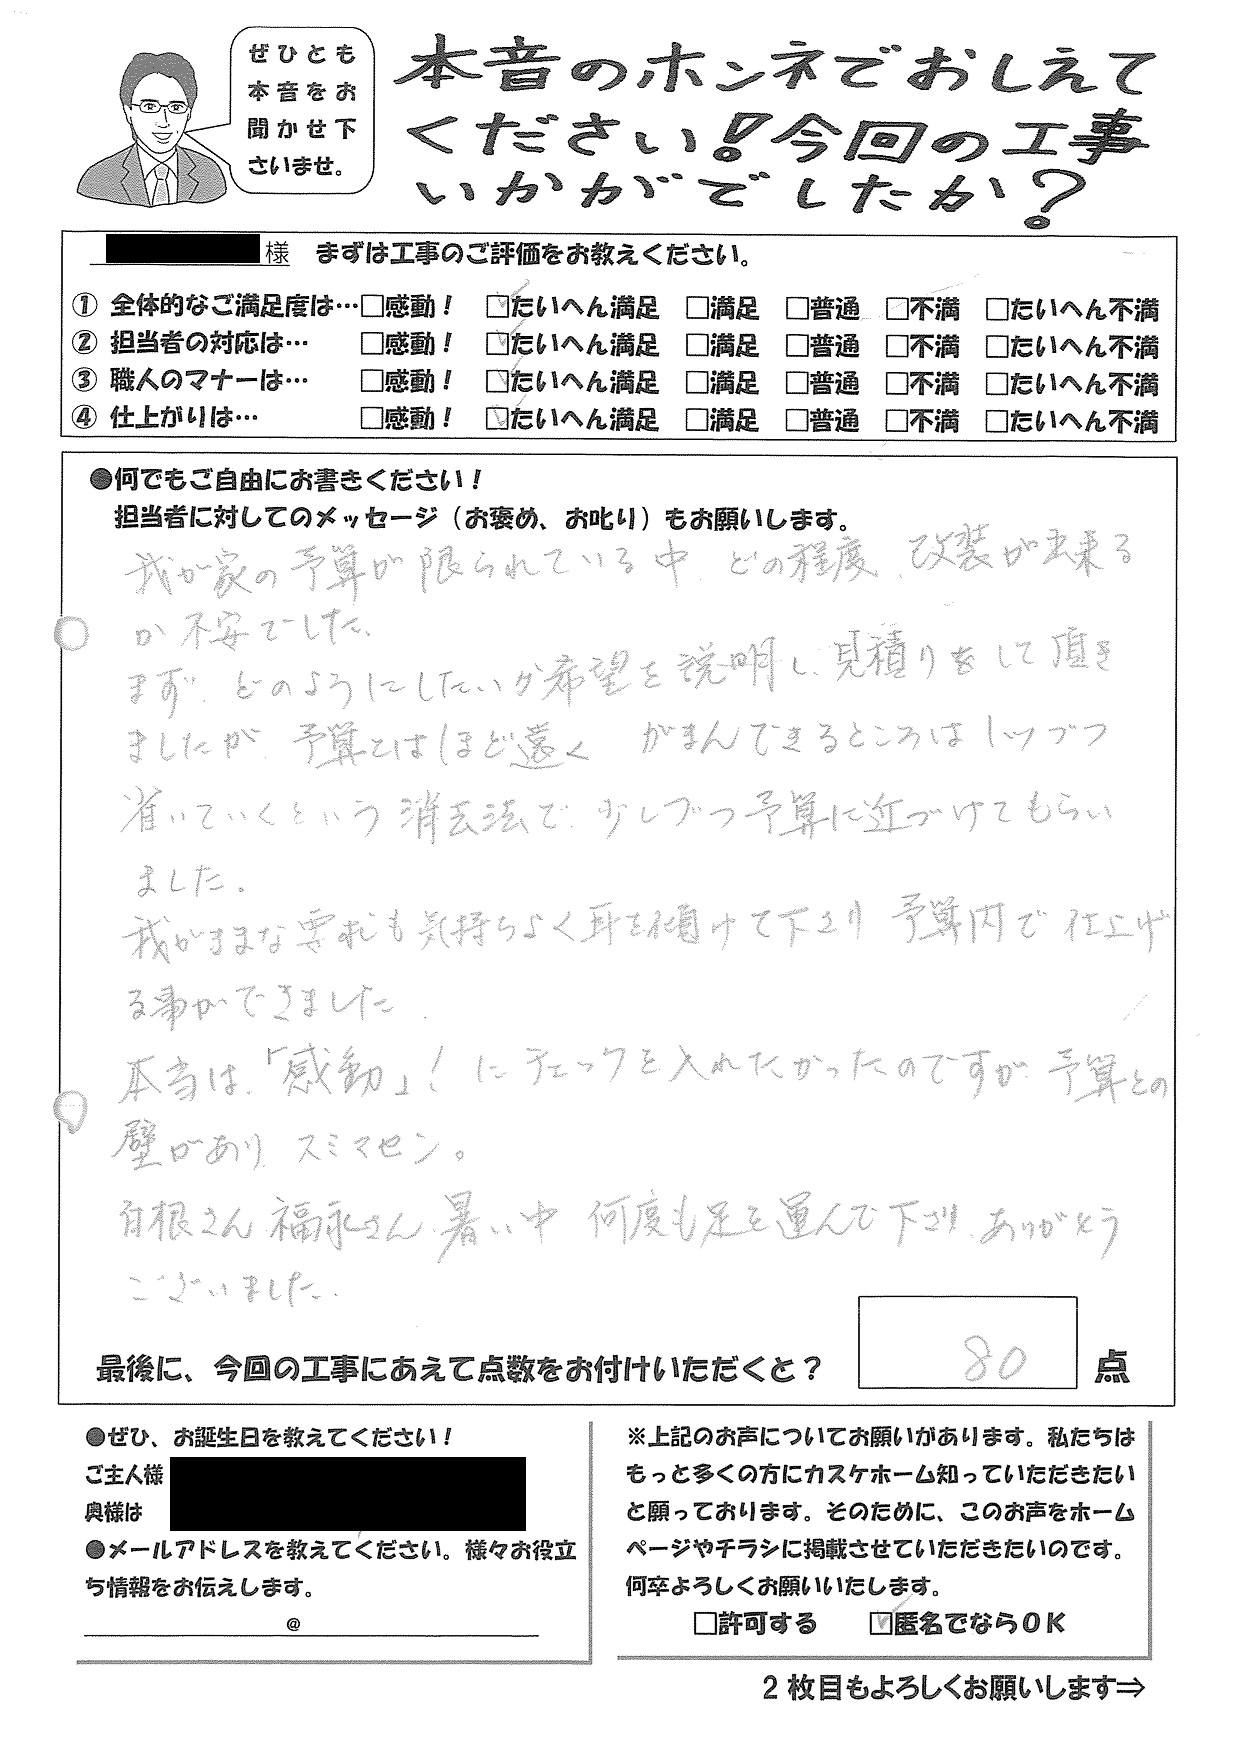 ぜひとも
本音をお
聞かせ下
さいませ。
本音のホンネでおしえて
ください!今回の工事
いかがでしたか?
様 まずは工事のご評価をお教えください。
① 全体的なご満足度は…□感動! ☑たいへん満足 □満足 □普通 □不満 □たいへん不満
② 担当者の対応は… □感動! ☑たいへん満足 □満足 □普通 □不満 □たいへん不満
③ 職人のマナーは… □感動! ☑たいへん満足 □満足 □普通 □不満 □たいへん不満
④ 仕上がりは… □感動! ☑たいへん満足 □満足 □普通 □不満 □たいへん不満
●何でもご自由にお書きください!
担当者に対してのメッセージ(お褒め、お叱り)もお願いします。
我が家の予算が限られている中、どの程度、改装が出来る
か不安でした、
まず、どのようにしたいか希望を説明し、見積りをして頂き
ましたが、予算とはほど遠く がまんできるところは1つづつ
省いていくという消去法で、少しづつ予算に近づけてもらい
ました。
我がままな要求も気持ちよく耳を傾けて下さり 予算内で仕上げ
る事ができました.
本当は、「感動」!にチェックを入れたかったのですが、予算との
壁があり、スミマセン。
白根さん 福永さん、暑い中 何度も足を運んで下さり、ありがとう
ございました.
最後に、今回の工事にあえて点数をお付けいただくと? 80 点
●ぜひ、お誕生日を教えてください!
ご主人様
奥様は
●メールアドレスを教えてください。様々お役立
ち情報をお伝えします。
@
※上記のお声についてお願いがあります。私たちは
もっと多くの方にカスケホーム知っていただきたい
と願っております。そのために、このお声をホーム
ページやチラシに掲載させていただきたいのです。
何卒よろしくお願いいたします。
□許可する ☑匿名でならOK
2枚目もよろしくお願いします⇒